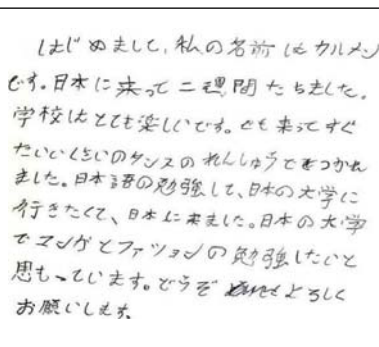 はじめまして、私の名前はカルメン
です。日本に来って二週間たちました。
学校はとても楽しいです。でも来ってすぐ
たいいくさいのダンスのれんしゅうでをつかれ
ました。日本語の勉強して、日本の大学に
行きたくて、日本に来ました。日本の大学
でマンガとファッションの勉強したいと
思もっています。どうぞ よろしく
お願いします。